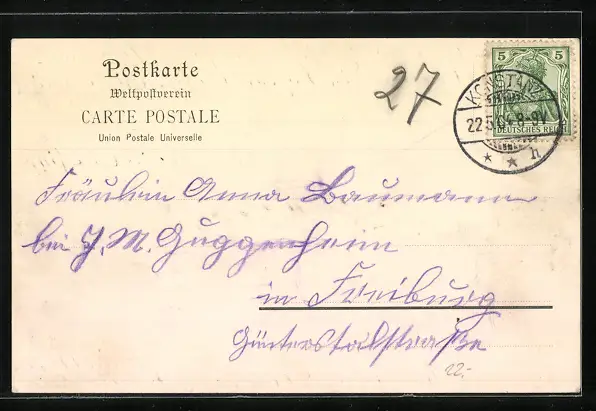 Postkarte
Weltpostverein
CARTE POSTALE
Union Postale Universelle
27
5 5
DEUTSCHES REICH
KONSTANZ
22.5.04 8-9V
* * h
Fräulein Anna Baumann
bei J. M. Guggenheim
in Freiburg
Günterstalstraße
22.-